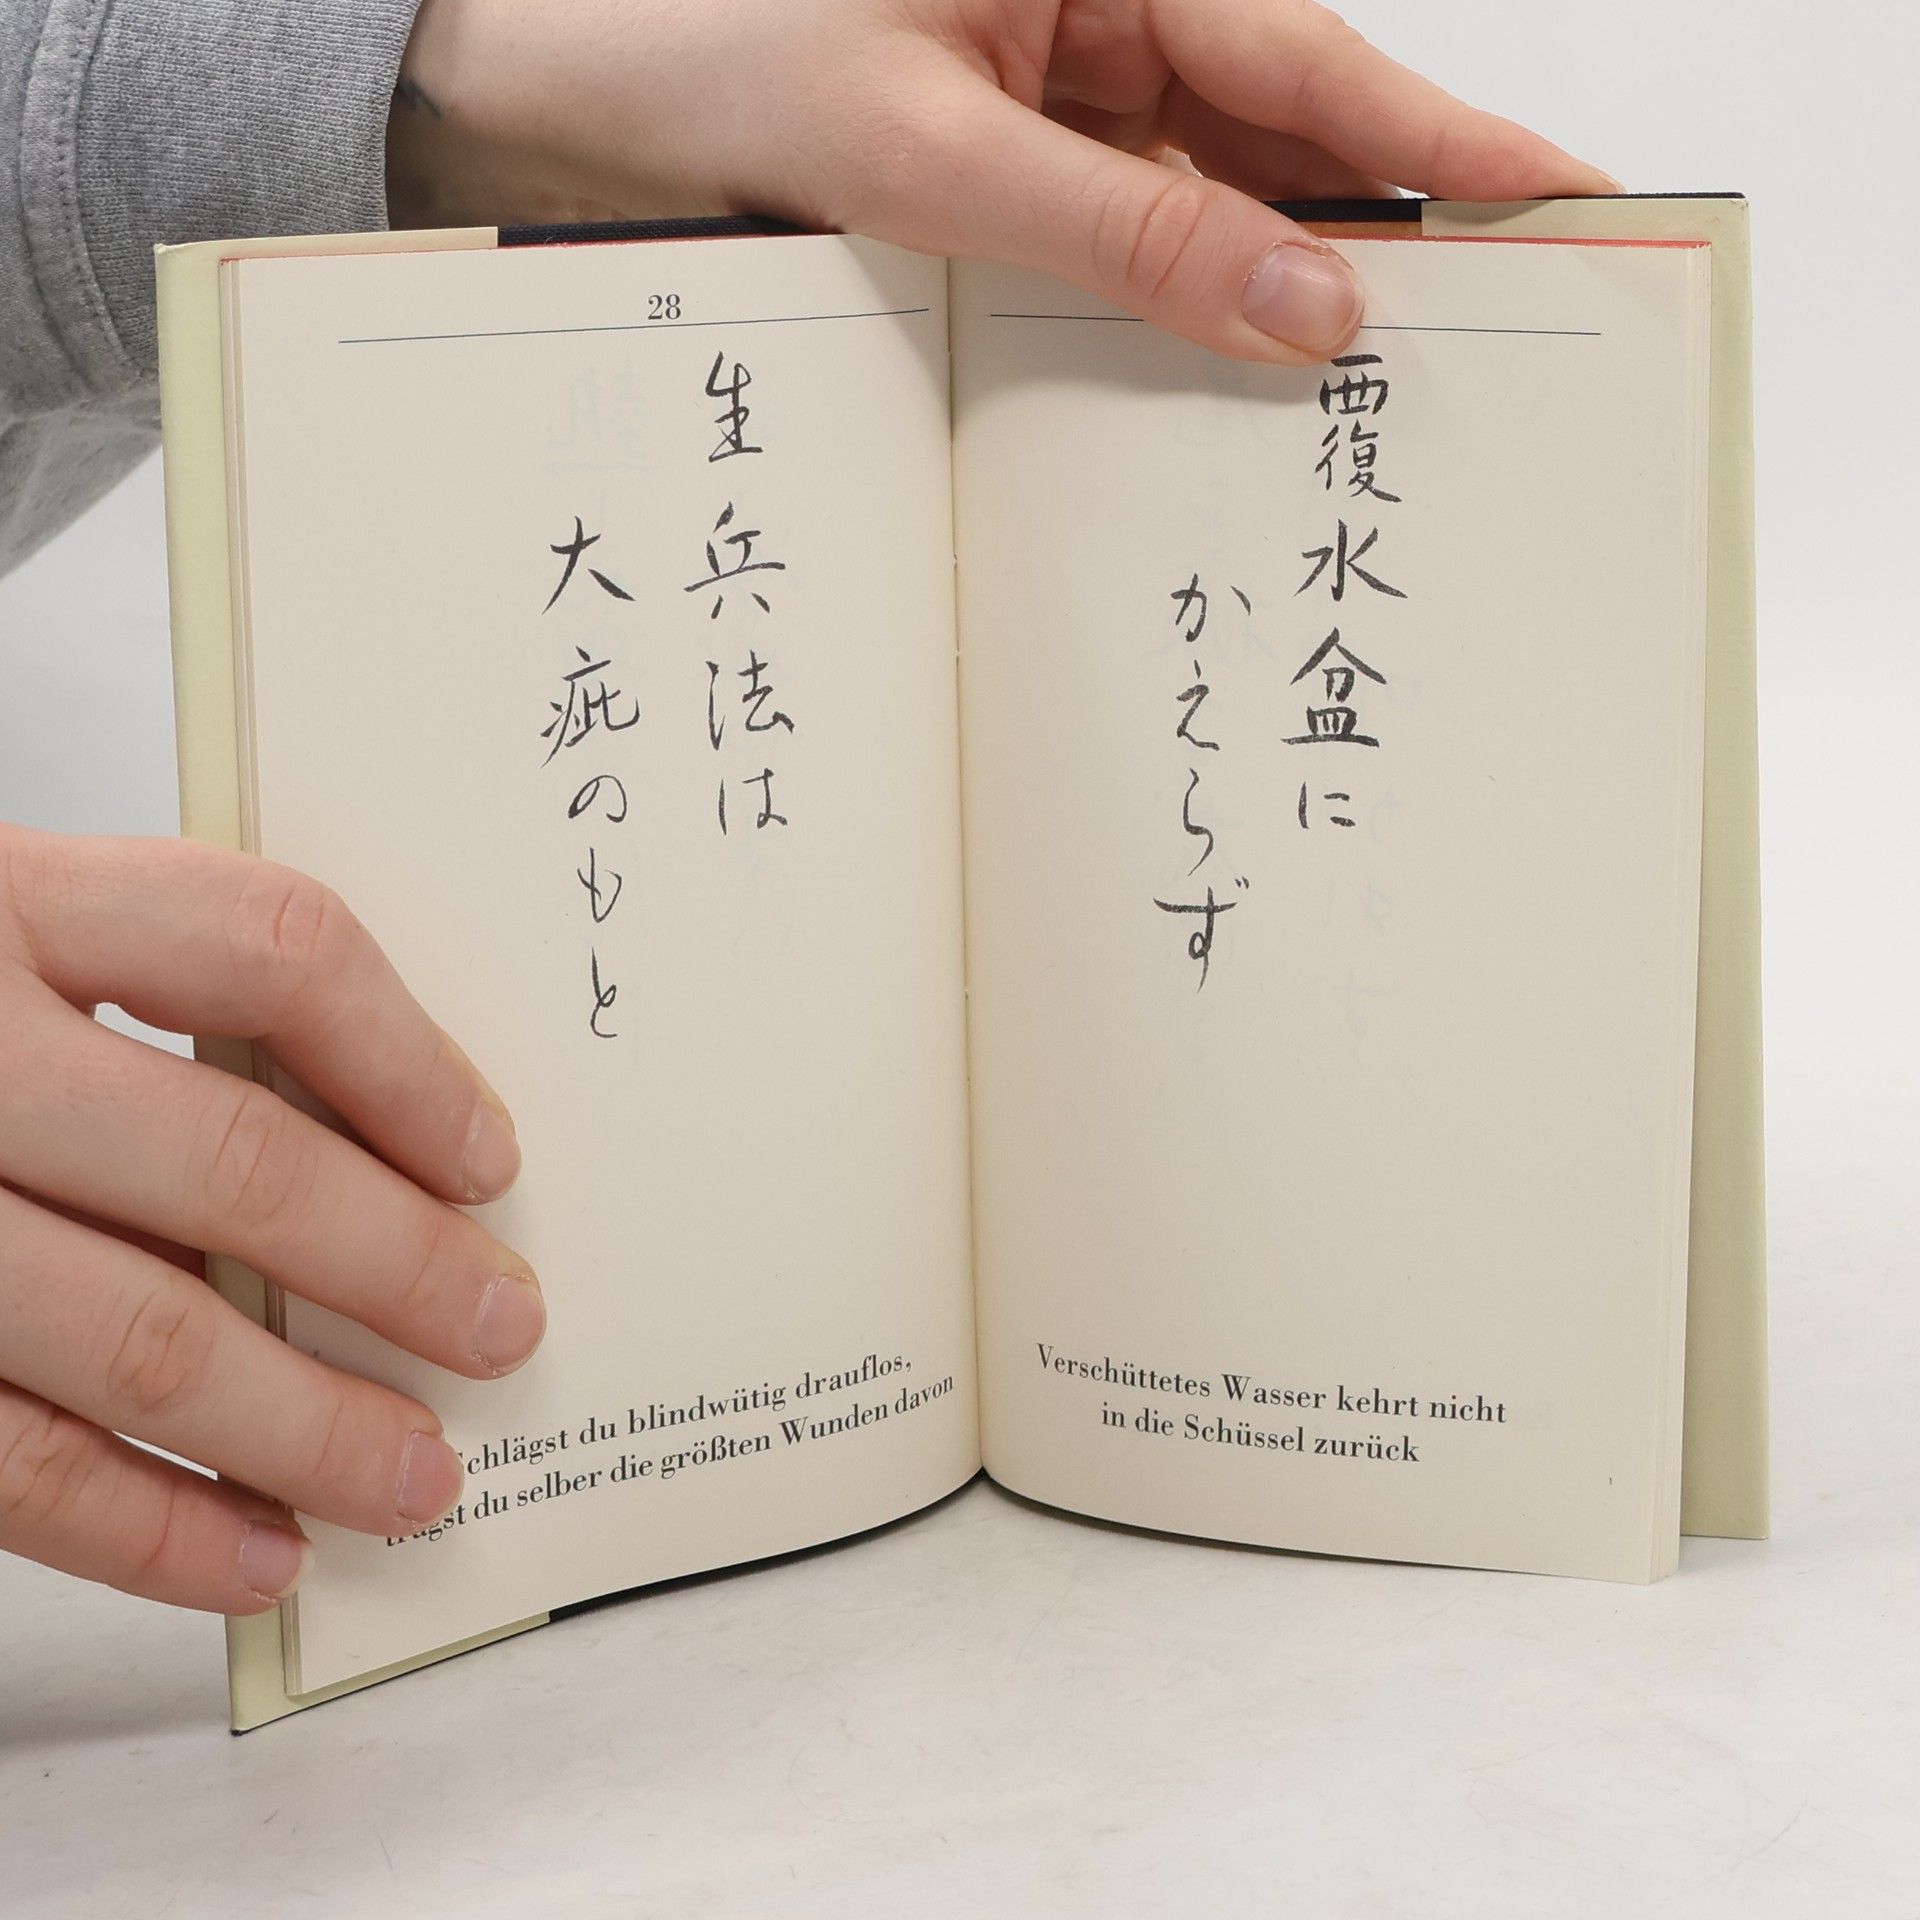 28
生兵法は
大疵のもと
Schlägst du blindwütig drauflos,
trägst du selber die größten Wunden davon
覆水盆に
かえらず
Verschüttetes Wasser kehrt nicht
in die Schüssel zurück